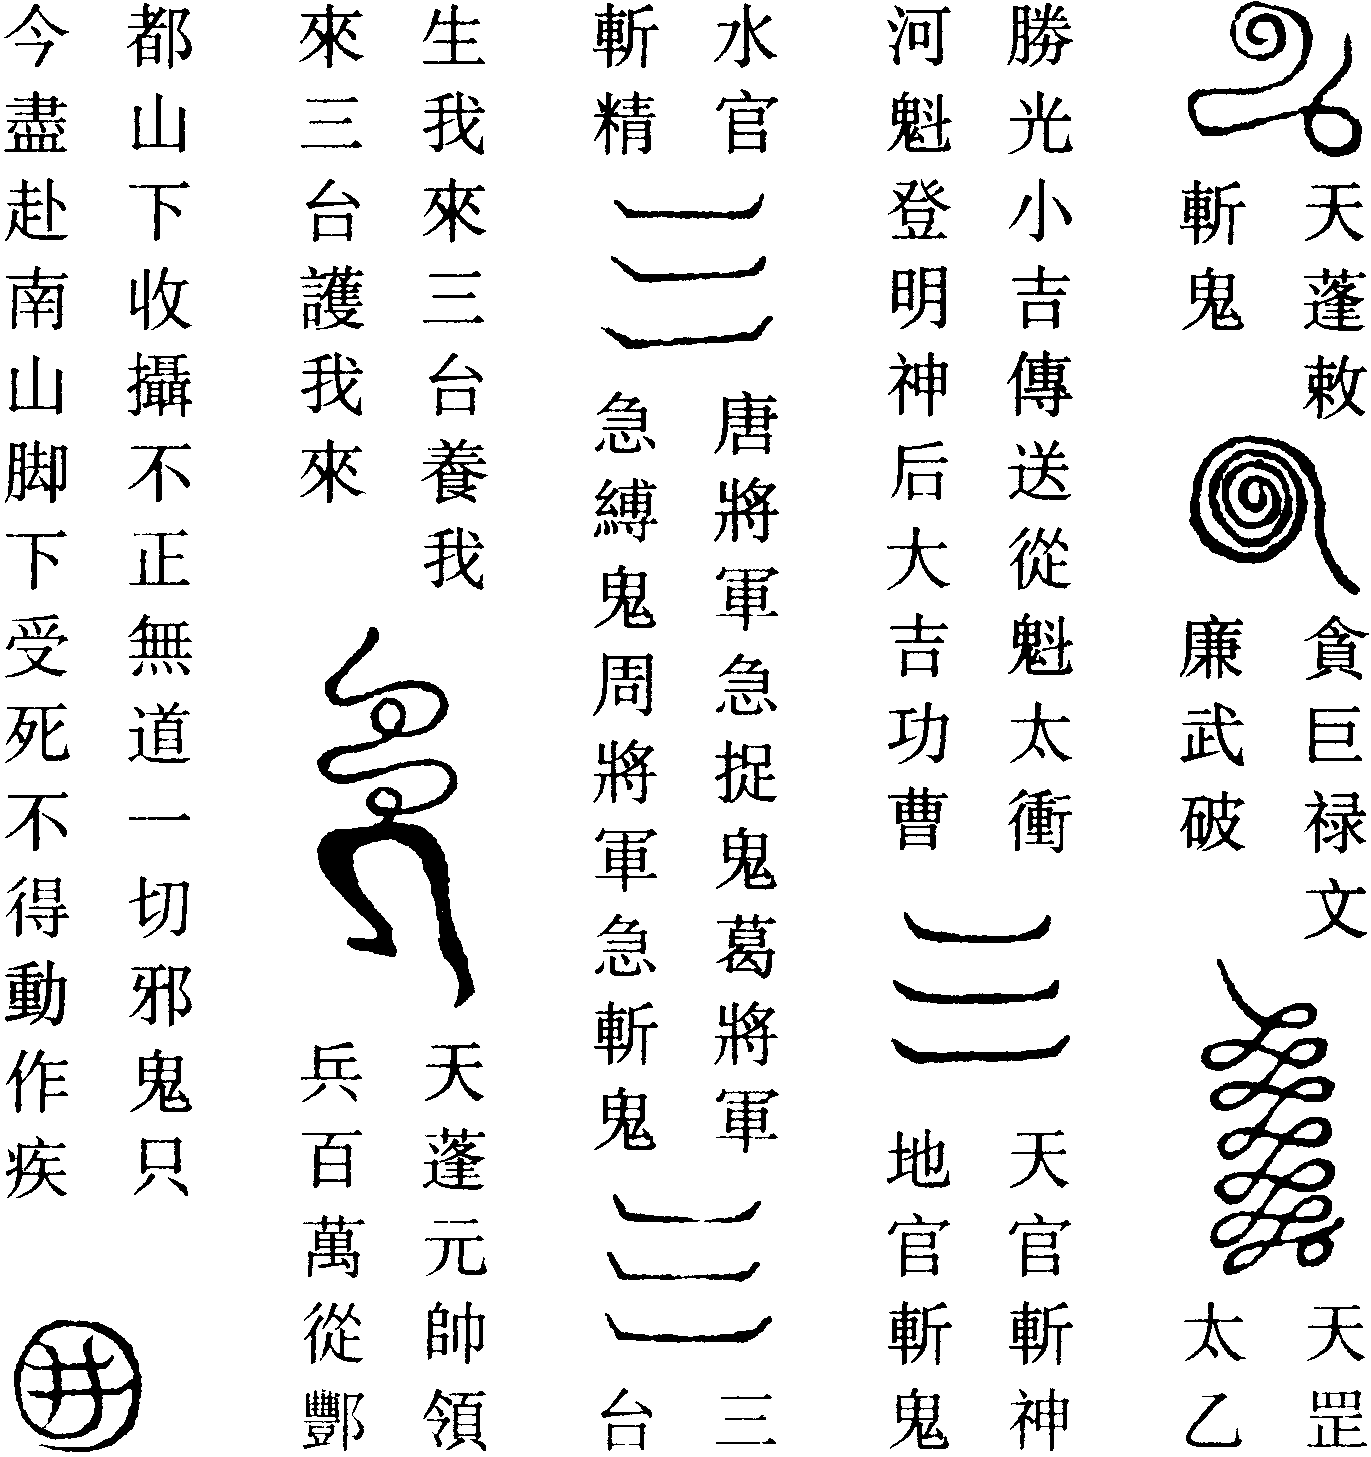 天蓬敕
斬鬼
貪巨禄文
廉武破
天罡
太乙
勝光小吉傳送從魁太衝
河魁登明神后大吉功曹
天官斬神
地官斬鬼
水官
斬精
唐將軍急捉鬼葛將軍
急縛鬼周將軍急斬鬼
三
台
生我來三台養我
來三台護我來
天蓬元帥領
兵百萬從酆
都山下收攝不正無道一切邪鬼只
今盡赴南山脚下受死不得動作疾